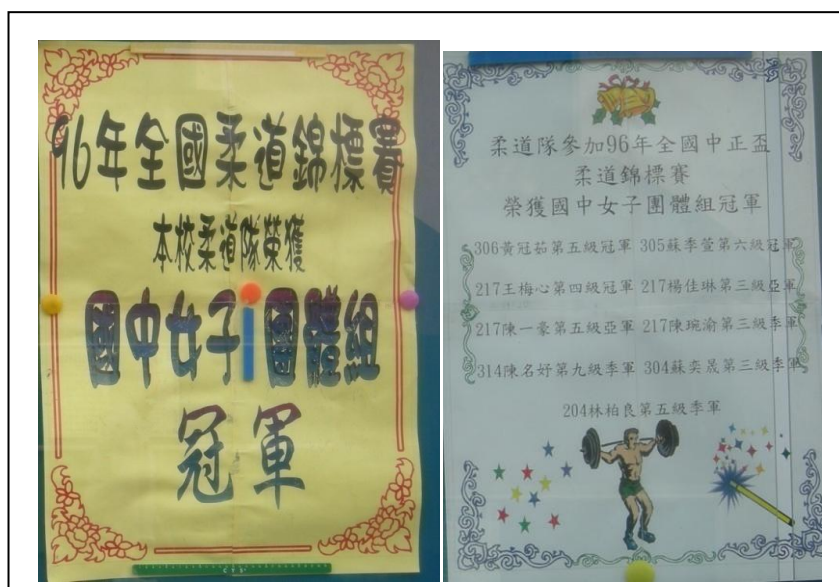 96年全國柔道錦標賽
本校柔道隊榮獲
國中女子團體組
冠軍
柔道隊參加96年全國中正盃
柔道錦標賽
榮獲國中女子團體組冠軍
306黃冠茹第五級冠軍 305蘇季萱第六級冠軍
217王梅心第四級冠軍 217楊佳琳第三級亞軍
217陳一豪第五級亞軍 217陳琬渝第三級季軍
314陳名妤第九級季軍 304蘇奕晟第三級季軍
204林柏良第五級季軍